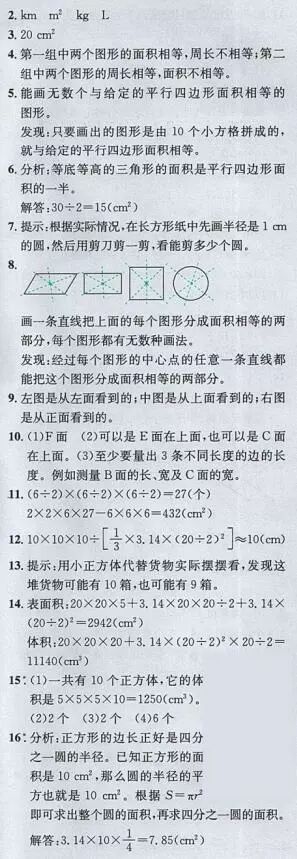 2. km　m²　kg　L
3. 20 cm²
4. 第一组中两个图形的面积相等,周长不相等;第二
组中两个图形的周长相等,面积不相等。
5. 能画无数个与给定的平行四边形面积相等的
图形。
发现:只要画出的图形是由 10 个小方格拼成的,
就与给定的平行四边形面积相等。
6. 分析:等底等高的三角形的面积是平行四边形面
积的一半。
解答:30÷2=15(cm²)
7. 提示:根据实际情况,在长方形纸中先画半径是 1 cm
的圆,然后用剪刀剪一剪,看能剪多少个圆。
8.
画一条直线把上面的每个图形分成面积相等的两
部分,每个图形都有无数种画法。
发现:经过每个图形的中心点的任意一条直线都
能把这个图形分成面积相等的两部分。
9. 左图是从左面看到的;中图是从上面看到的;右图
是从正面看到的。
10. (1)F 面　(2)可以是 E 面在上面,也可以是 C 面
在上面。(3)至少要量出 3 条不同长度的边的长
度。例如测量 B 面的长、宽及 C 面的宽。
11. (6÷2)×(6÷2)×(6÷2)=27(个)
2×2×6×27-6×6×6=432(cm²)
12. 10×10×10÷[1/3×3.14×(20÷2)²]≈10(cm)
13. 提示:用小正方体代替货物实际摆摆看,发现这
堆货物可能有 10 箱,也可能有 9 箱。
14. 表面积:20×20×5+3.14×20×20÷2+3.14×
(20÷2)²=2942(cm²)
体积:20×20×20+3.14×(20÷2)²×20÷2=
11140(cm³)
15*. (1)一共有 10 个正方体,它的体
积是 5×5×5×10=1250(cm³)。
(2)2 个　(3)2 个　(4)6 个
16*. 分析:正方形的边长正好是四分
之一圆的半径。已知正方形的面
积是 10 cm²,那么圆的半径的平
方也就是 10 cm²。根据 S=πr²
即可求出整个圆的面积,再求四分之一圆的面积。
解答:3.14×10×1/4=7.85(cm²)